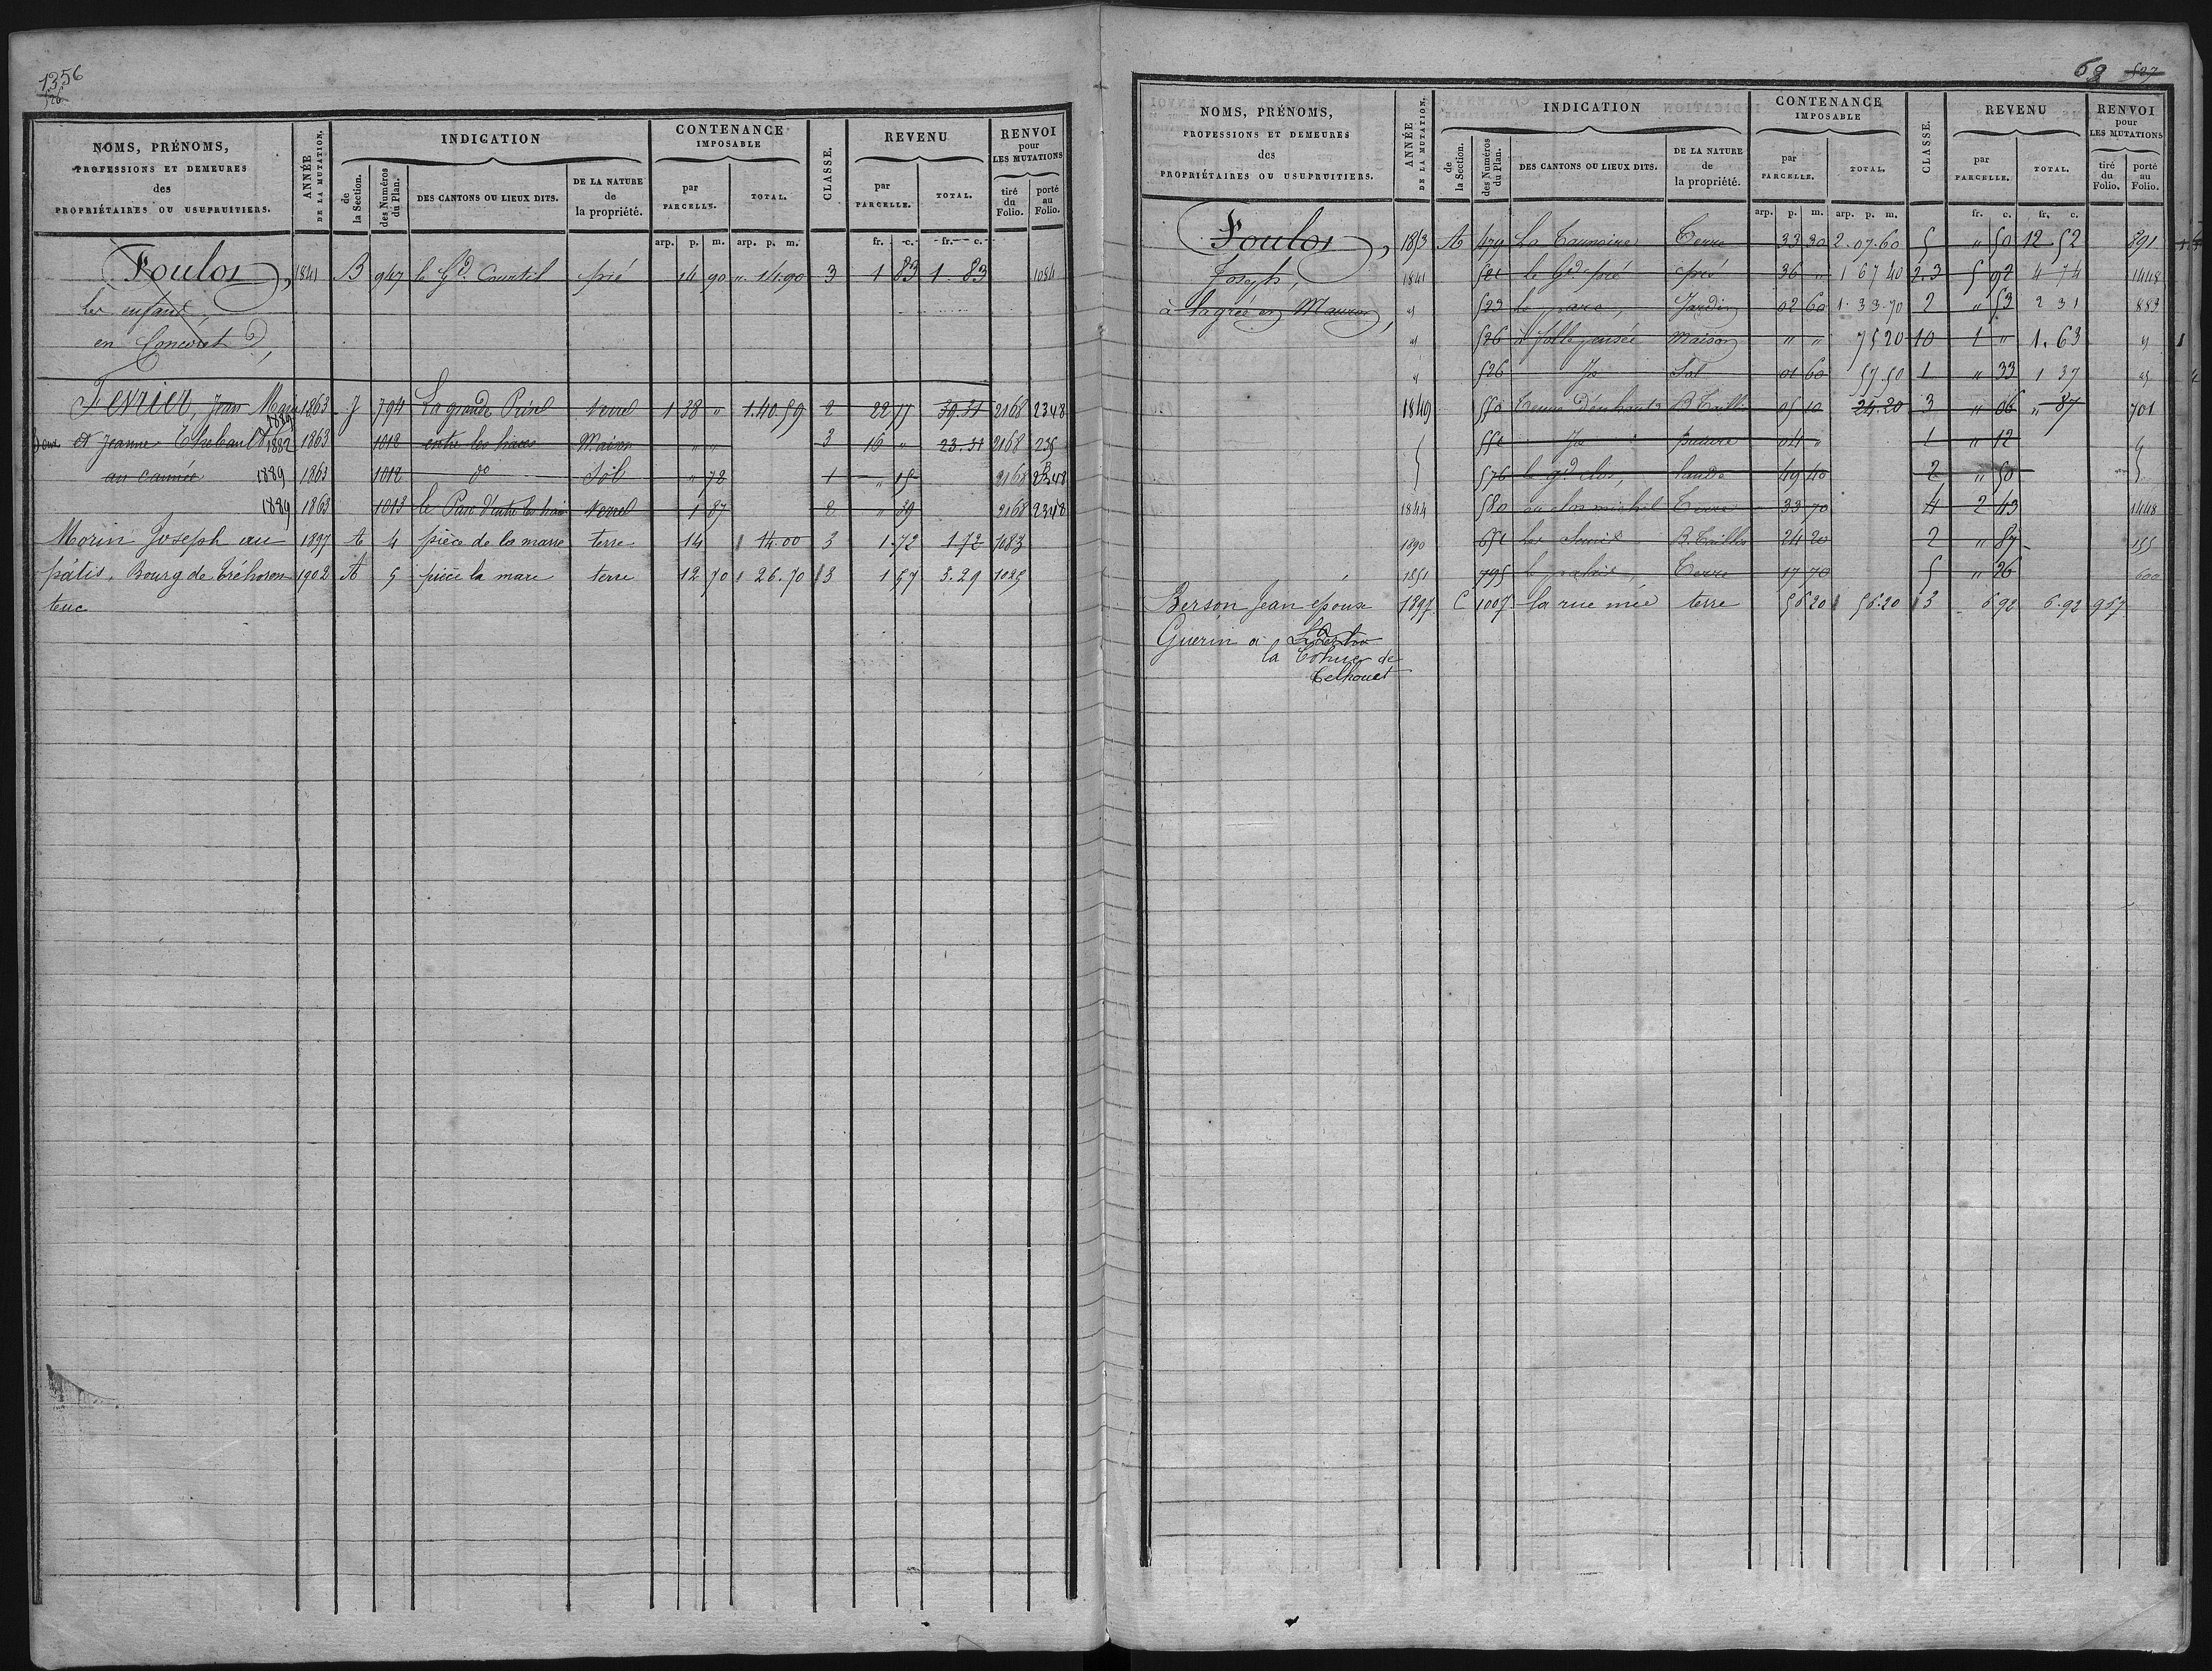 1356
526
NOMS, PRÉNOMS, PROFESSIONS ET DEMEURES des PROPRIÉTAIRES OU USUFRUITIERS.
ANNÉE DE LA MUTATION.
INDICATION
de la Section.
des Numéros du Plan.
DES CANTONS OU LIEUX DITS.
DE LA NATURE de la propriété.
CONTENANCE IMPOSABLE
par PARCELLE.
TOTAL.
CLASSE.
REVENU
par PARCELLE.
TOTAL.
RENVOI pour LES MUTATIONS
tiré du Folio.
porté au Folio.
arp. p. m. arp. p. m. fr. c. fr. c.
Foulon, 1841 B 947 le Gd. Courtil pré 14 90 " 14.90 3 1 83 1.83 1084
Les enfans
en Concoret
Fevrier, Jean Marie 1863 J 794 La grande Prise Verrel 1 38 " 1.40.59 2 22 97 39.31 2168 2348
1889
et Jeanne Thebaud 1882 1863 1012 entre les haies Maison " " 3 16 " 23.31 2168 235
au cannée 1889 1863 1012 do Sol " 72 1 " 15 2168 2348
1889 1863 1013 le Parc d'entre les haies Verrel 1 87 2 " 39 2168 2348
Morin Joseph au 1897 A 4 pièce de la marre terre 14 14.00 3 1 72 1.72 483
pâtis, Bourg de Tréhoren 1902 A 5 pièce la mare terre 12 70 26.70 3 1 57 3.29 1025
teuc
69 527
NOMS, PRÉNOMS, PROFESSIONS ET DEMEURES des PROPRIÉTAIRES OU USUFRUITIERS.
ANNÉE DE LA MUTATION.
INDICATION
de la Section.
des Numéros du Plan.
DES CANTONS OU LIEUX DITS.
DE LA NATURE de la propriété.
CONTENANCE IMPOSABLE
par PARCELLE.
TOTAL.
CLASSE.
REVENU
par PARCELLE.
TOTAL.
RENVOI pour LES MUTATIONS
tiré du Folio.
porté au Folio.
arp. p. m. arp. p. m. fr. c. fr. c.
Foulon, 1853 A 479 La Terre 33 30 2.07.60 5 " 50 12 52 891
Joseph, 1841 521 le Gd pré pré 36 " 1 67 40 2.3 5 92 4 74 1448
à lagrée en Mauron, " 523 le parc, Jardin 02 60 1.33.70 2 " 53 2 31 883
" 526 à folle pensée Maison " " 75 20 10 1 " 1.63 "
" 526 Jd Sol 01 60 57.50 1 " 33 1 37 "
1849 550 B. Taillis 05 10 24.20 3 " 06 " 87 701
551 Jd pature 04 " 1 " 12
576 le gd clos, lande 49 40 2 " 50
1844 580 au clos michel Terre 33 70 4 2 43 1448
1890 651 B. Taillis 24 20 2 " 87 155
1851 795 le palais, Terre 17 70 5 " 26 600
Berson Jean epoux 1897 C 1007 la rue mie terre 56 20 56.20 3 6 92 6.92 957
Guerin à
la Cohue de
Telhouet